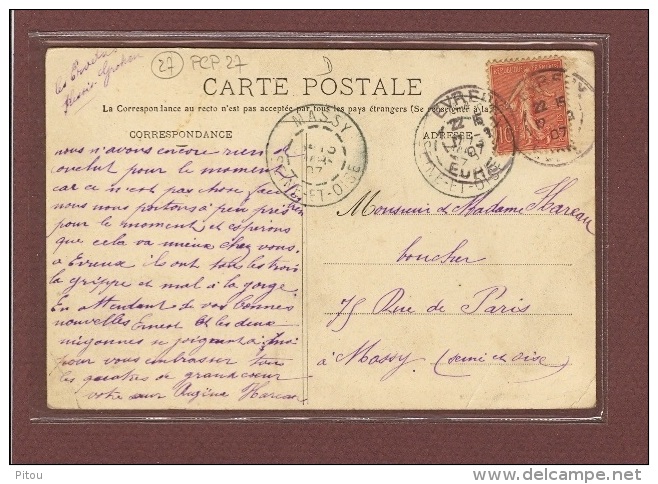 27 PCP 27
CARTE POSTALE
La Correspondance au recto n'est pas acceptée par tous les pays étrangers (Se renseigner à la
CORRESPONDANCE
ADRESSE
MASSY
SEINE-ET-OISE
EVREUX
EURE
10
nous n'avons encore rien
conclut pour le moment
car ce n'est pas chose facile
nous nous portons à peu près bien
pour le moment et espérons
que cela va mieux chez vous.
a Evreux ils ont tous les trois
la grippe et mal à la gorge.
En attendant de vos bonnes
nouvelles Ernest et les deux
mignonnes se joignent à moi
pour vous embrasser tous
les quatres de grand coeur
votre sœur Hareau
Monsieur et Madame Hareau
boucher
75 Rue de Paris
à Massy (Seine et Oise)
Pitou
delcampe.net